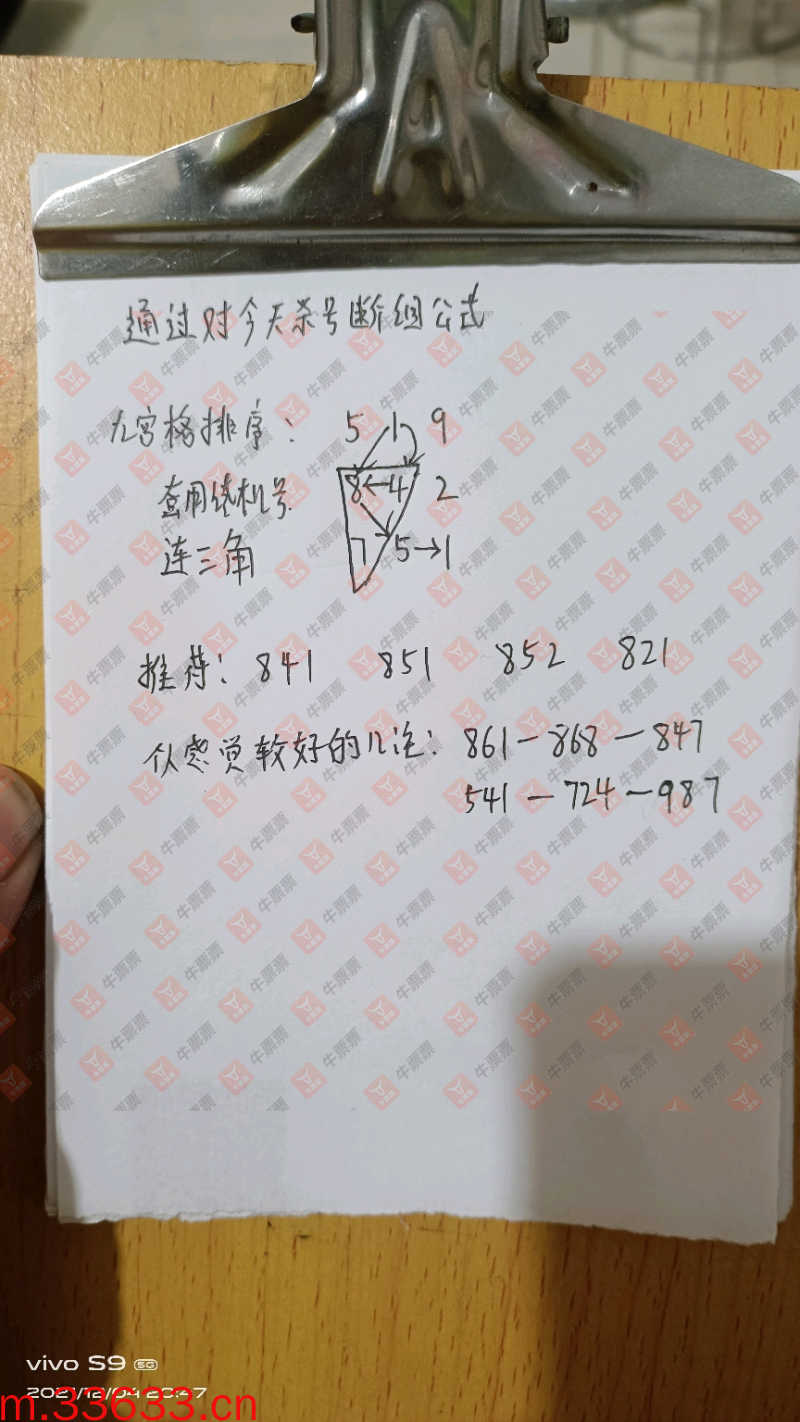 通过对今天杀号断组公式
九宫格排序： 5 1 9
查用统机号 8←4 2
连三角 7 5→1
推荐： 841 851 852 821
从感觉较好的几注： 861－868－847
541－724－987
牛票票
vivo S9 5G
2021/12/04 20:47
m.33633.cn